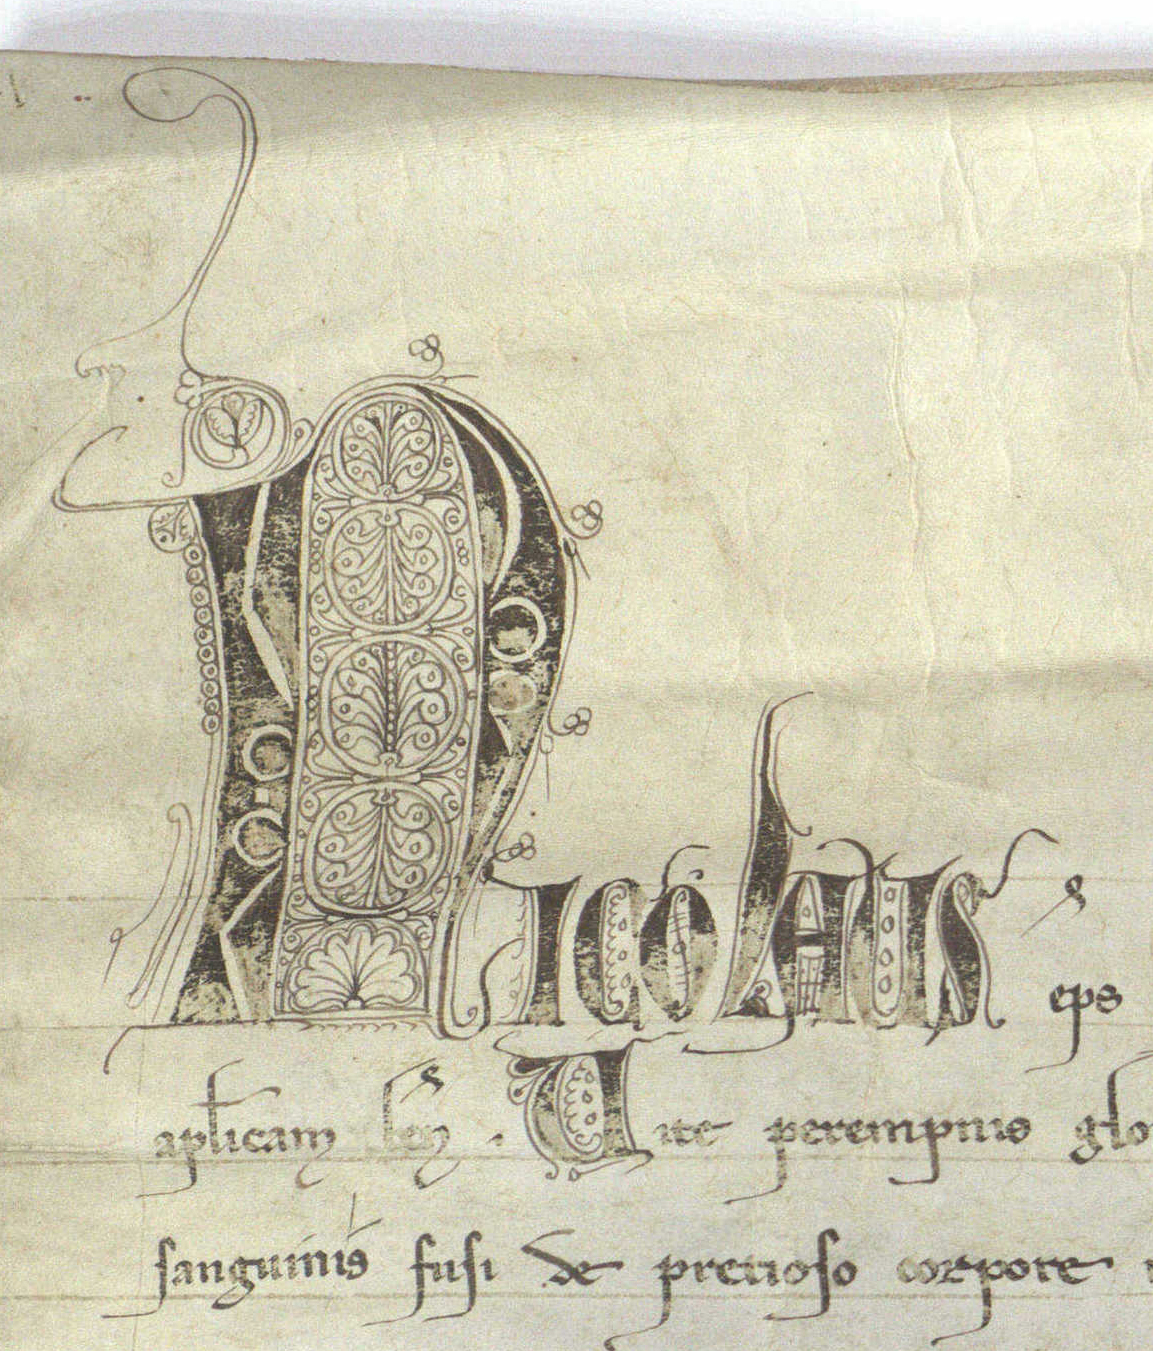 Nicolaus eps
aplicam ben . Vite perempnis glo
sanguinis fusi de precioso corpore